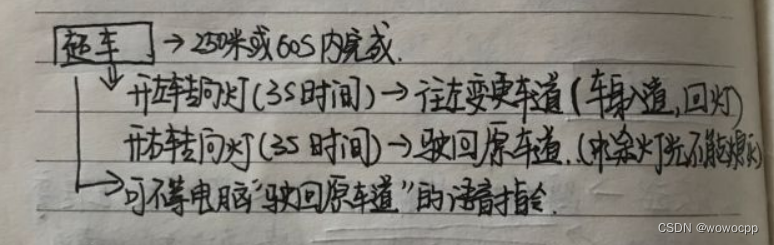 超车 → 250米或60S内完成.
开左转向灯(3S时间)→往左变更车道(车身入道,回灯)
开右转向灯(3S时间)→驶回原车道.(非余灯光不能熄灭)
可不等电脑“驶回原车道”的语音指令.
CSDN @wowocpp